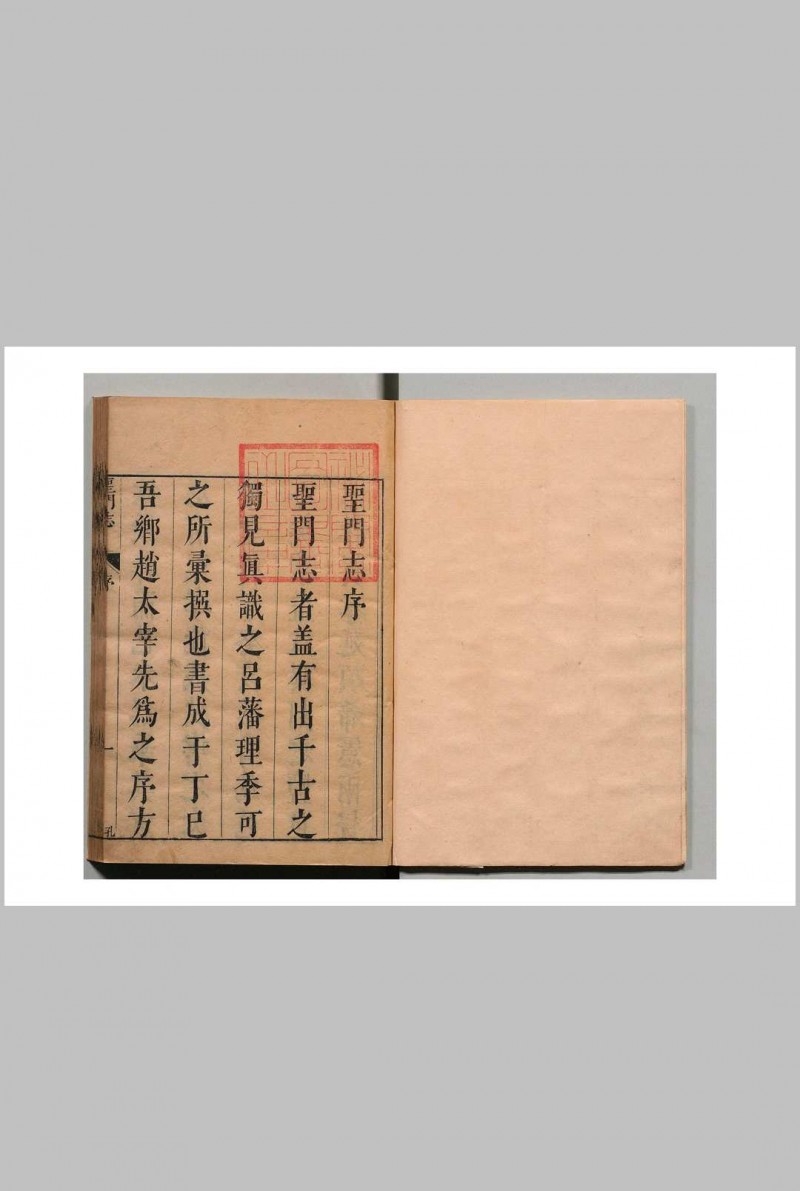 聖門志序
聖門志者盖有出千古之
獨見眞識之呂藩理季可
之所彙撰也書成于丁巳
吾鄉趙太宰先爲之序方
聖門志
序
一